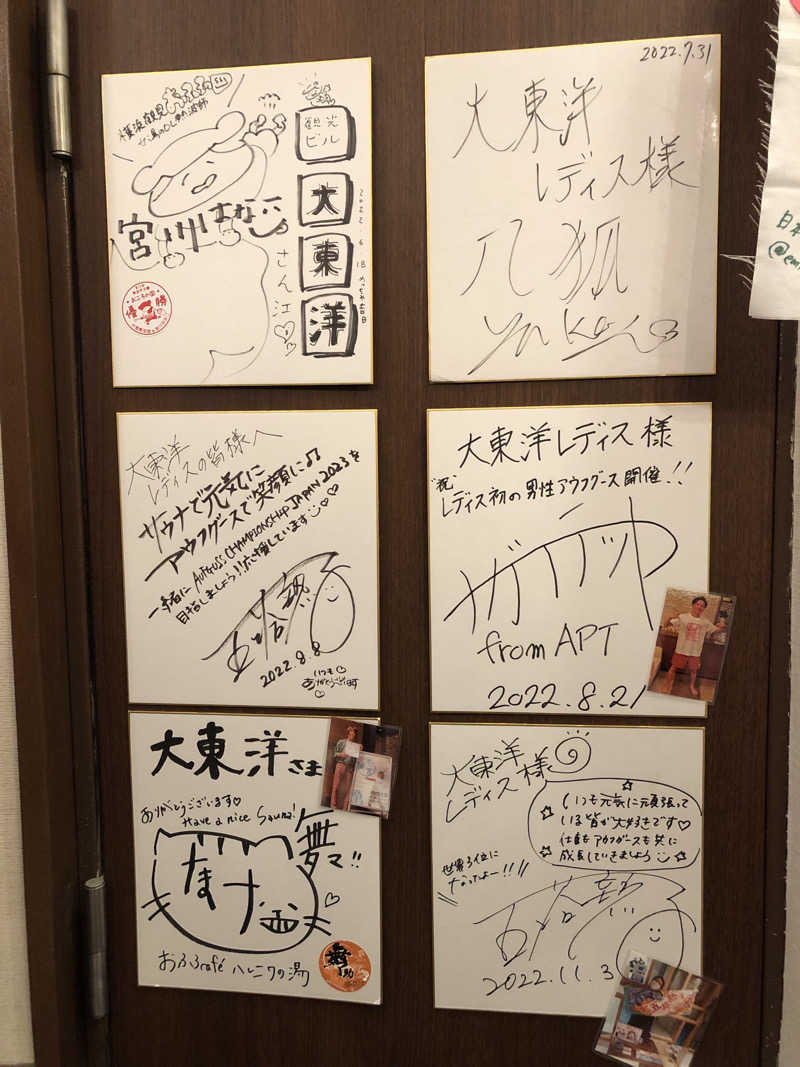 横浜鶴見
宮川はなこ
さん江♡
観光
ビル
大
東
洋
2022.6.18
優勝
2022.7.31
大東洋
レディス様
八狐
大東洋
レディスの皆様へ
サウナで元気に
アウフグースで笑顔に♫
一緒に AUFGUSS CHAMPIONSHIP JAPAN 2023を
目指しましょう!!応援しています
2022.8.8
いつも♡
ありがとうございます
大東洋レディス様
"祝"
レディス初の男性アウフグース開催!!
from APT
2022.8.21
大東洋さま
ありがとうございます♡
Have a nice Sauna!
おふろcafé ハレニワの湯
大東洋
レディス様
いつも元気に頑張って
いる皆が大好きです♡
仕事もアウフグースも共に
成長していきましょう
世界3位に
なったよー!!
2022.11.3